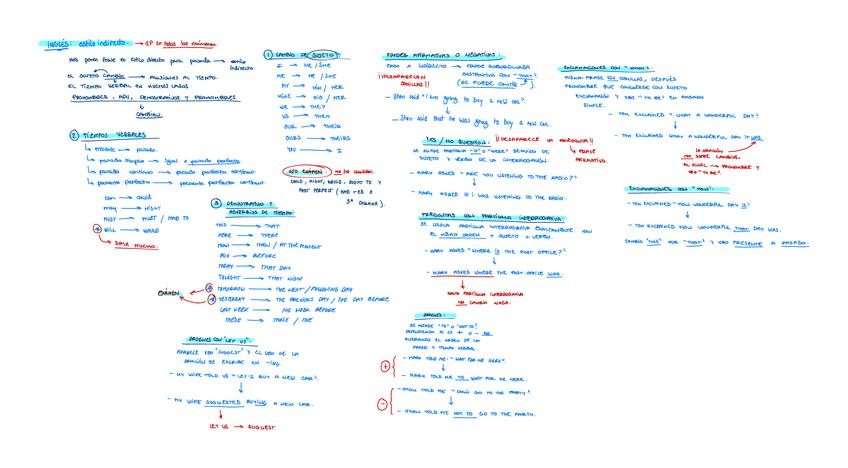 INGLÉS: estilo indirecto. → 1P en todos los exámenes.
Nos ponen frase en estilo directo para pasarla → estilo indirecto.
EL SUJETO CAMBIA → ALUSIONES AL TIEMPO.
EL TIEMPO VERBAL EN MUCHOS CASOS
PRONOMBRES, ADV, DEMOSTRATIVOS Y PRONOMBRES
CAMBIAN.
② TIEMPOS VERBALES
↳ Presente → pasado.
↳ pasado simple → Igual o pasado perfecto
↳ presente continuo → pasado continuo.
↳ presente perfecto → perfecto continuo.
can → could
may → might
MUST → MUST / HAD TO
WILL → WOULD
↳ SALE MUCHO.
① CAMBIO DE SUJETO
I → HE/SHE
ME → HE/SHE
MY → HIM/HER
MINE → HIS/HER
WE → THEY
US → THEM
OUR → THEIR
OURS → THEIRS
YOU → I
OJO EXAMEN: no se cambian
COULD, MIGHT, WOULD, OUGHT TO Y
PAST PERFECT (HAD + ED o
3ª COLUMNA).
③ DEMOSTRATIVOS Y
ADVERBIOS DE TIEMPO.
THIS → THAT
HERE → THERE
NOW → THEN / AT THE MOMENT
AGO → BEFORE
TODAY → THAT DAY
TONIGHT → THAT NIGHT
TOMORROW → THE NEXT / FOLLOWING DAY
EXAMEN
YESTERDAY → THE PREVIOUS DAY / THE DAY BEFORE
LAST WEEK → THE WEEK BEFORE
THESE → THOSE / THE
ORACIONES CON "LET US":
APARECE YOU "SUGGEST" Y EL VERBO DE LA
ORACIÓN SE ESCRIBE EN -ING.
- MY WIFE TOLD US "LET'S BUY A NEW CAR".
- MY WIFE SUGGESTED BUYING A NEW CAR.
LET US → SUGGEST
FRASES AFIRMATIVAS O NEGATIVAS.
PASA A INDIRECTO → FRASE SUBORDINADA
SUSTANTIVA CON "THAT".
¡¡DESAPARECEN
COMILLAS!!
(SE PUEDE OMITIR)
- John said "I was going to buy a new car".
- John said that he was going to buy a new car.
YES / NO QUESTION: ¡¡DESAPARECE LA PREGUNTA!!
SE AÑADE PARTÍCULA "IF" O "WHETHER" SEGUIDO DE
SUJETO Y VERBO DE LA INTERROGACIÓN.
FRASE
AFIRMATIVA.
- MARY ASKED "ARE YOU LISTENING TO THE RADIO?"
- MARY ASKED IF I WAS LISTENING TO THE RADIO.
PREGUNTAS CON PARTÍCULA INTERROGATIVA
SE COLOCA PARTÍCULA INTERROGATIVA EXACTAMENTE CON
EL MISMO ORDEN + SUJETO + VERBO.
- MARY ASKED "WHERE IS THE POST OFFICE?"
- MARY ASKED WHERE THE POST OFFICE WAS.
PARTÍCULA INTERROGATIVA
NO CAMBIA NADA.
ÓRDENES:
SE AÑADE "TO" O "NOT TO"
DEPENDIENDO SI ES + O - NO
ALTERANDO EL ORDEN DE LA
FRASE Y TIEMPO VERBAL.
+ - MARK TOLD ME: "WAIT FOR ME HERE".
- MARK TOLD ME TO WAIT FOR ME HERE.
- - MUM TOLD ME "DON'T GO TO THE PARTY"
- MUM TOLD ME NOT TO GO TO THE PARTY.
EXCLAMACIONES CON "WHAT":
MISMA FRASE SIN COMILLAS, DESPUÉS
PRONOMBRE QUE CONCUERDE CON SUJETO
EXCLAMACIÓN Y VERBO "TO BE" EN PASADO
SIMPLE.
- TOM EXCLAIMED "WHAT A WONDERFUL DAY!"
- TOM EXCLAIMED WHAT A WONDERFUL DAY IT WAS
LA ORACIÓN
NO SUFRE CAMBIOS,
AL FINAL → PRONOMBRE Y
VERBO "TO BE".
EXCLAMACIONES CON "HOW":
- TOM EXCLAIMED "HOW WONDERFUL DAY IS"
- TOM EXCLAIMED HOW WONDERFUL THAT DAY WAS.
CAMBIO "THIS" POR "THAT" Y VERBO PRESENTE A PASADO.